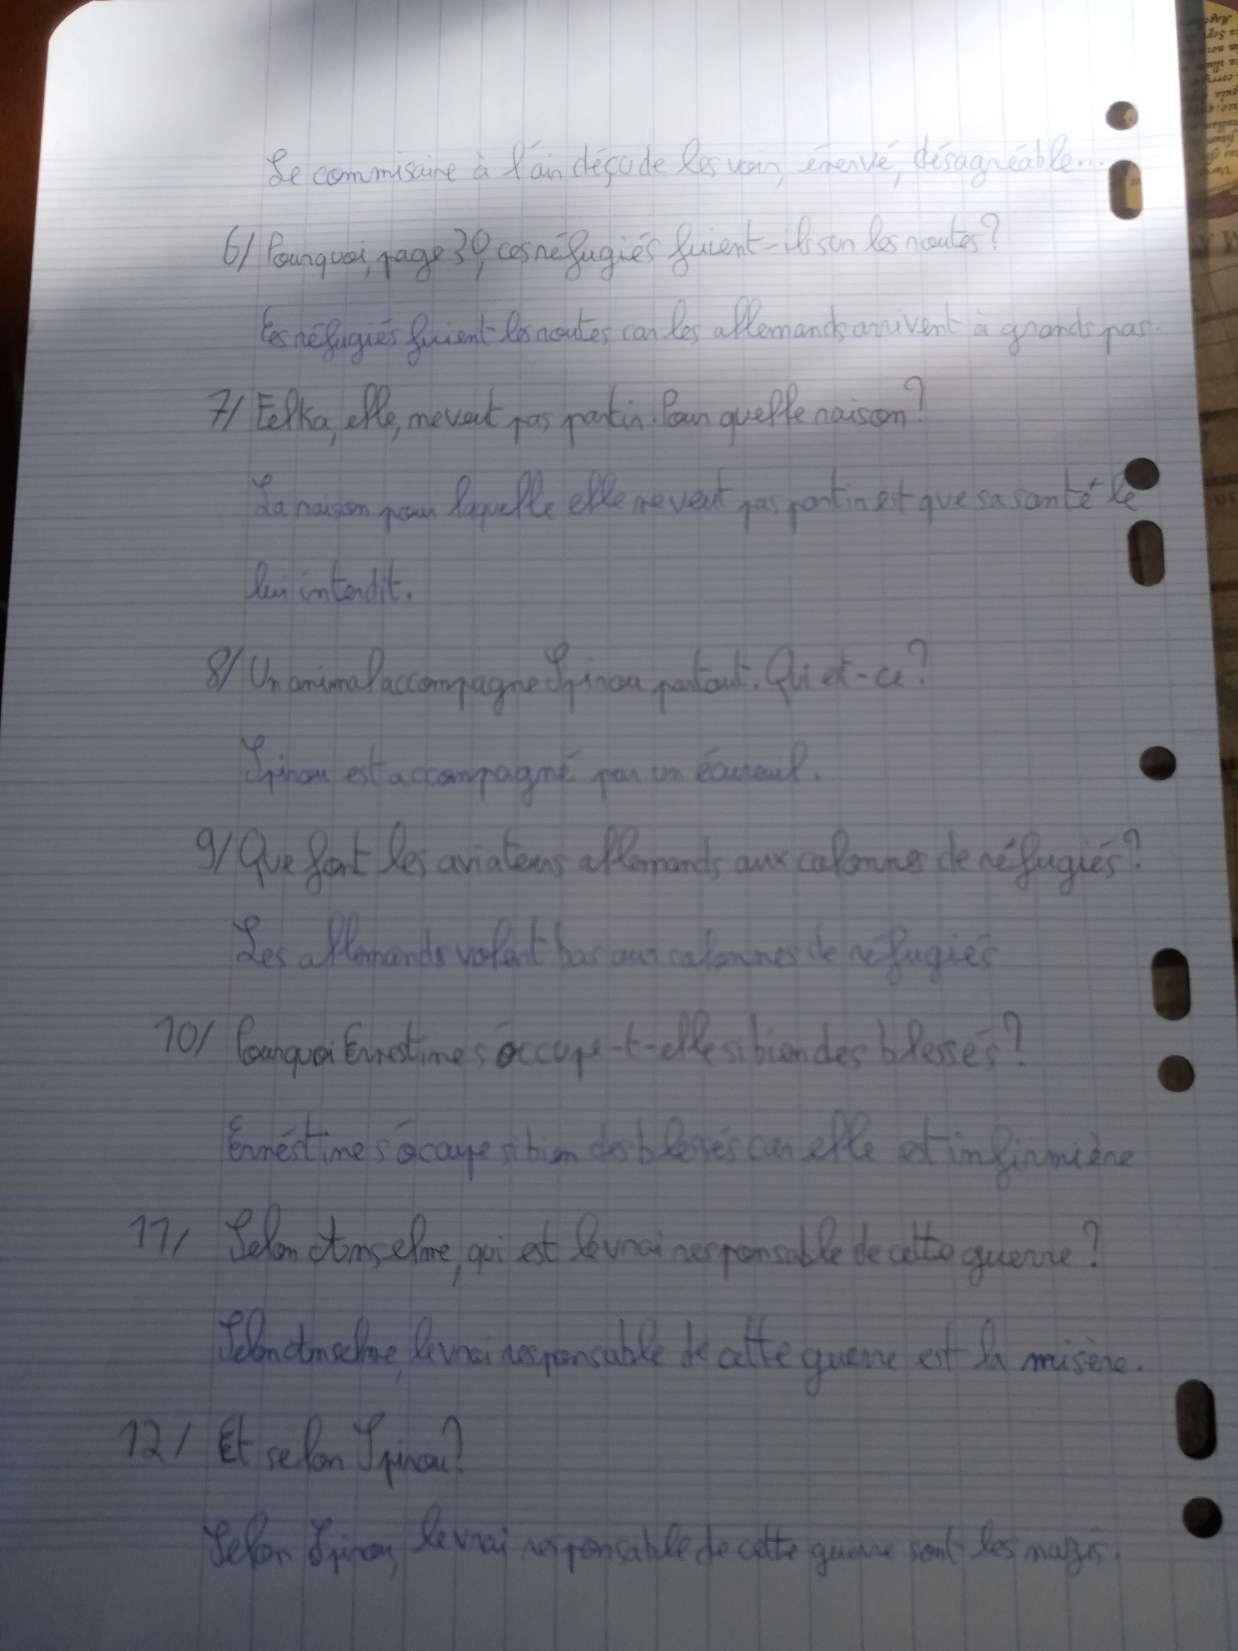 Le commisaire à l'air déçu de les voir, énervé, désagréable...
6/ Pourquoi, page 30, ces réfugiés fuient-ils sur les routes?
Les réfugiés fuient les routes car les allemands arrivent à grands pas.
7/ Felka, elle, ne veut pas partir. Pour quelle raison?
La raison pour laquelle elle ne veut pas partir est que sa santé le
lui interdit.
8/ Un animal accompagne Spirou partout. Qui est-ce?
Spirou est accompagné par un écureuil.
9/ Que font les aviateurs allemands aux colonnes de réfugiés?
Les allemands volent bas aux colonnes de réfugiés
10/ Pourquoi Ernestine s'occupe-t-elle si bien des blessés?
Ernéstine s'occupe si bien des blessés car elle est infirmière
11/ Selon Anselme, qui est le vrai responsable de cette guerre?
Selon Anselme, le vrai responsable de cette guerre est la misère.
12/ Et selon Spirou?
Selon Spirou, le vrai responsable de cette guerre sont les nazis.